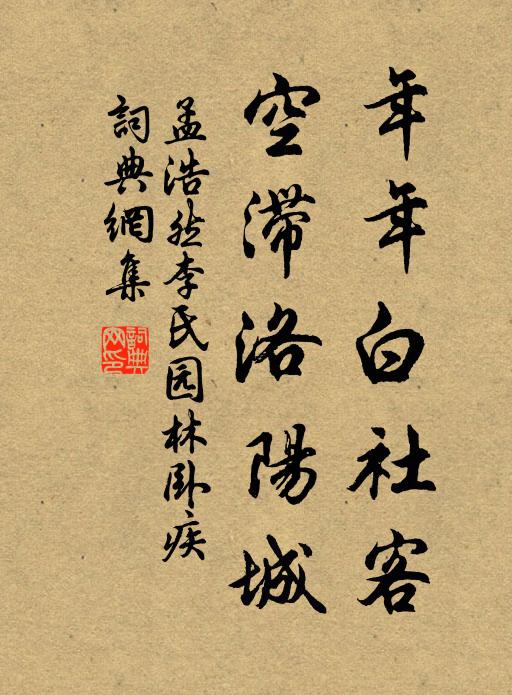 年年白社客
空滞洛陽城
孟浩然李氏园林卧疾
詞典網集
詞典
网印